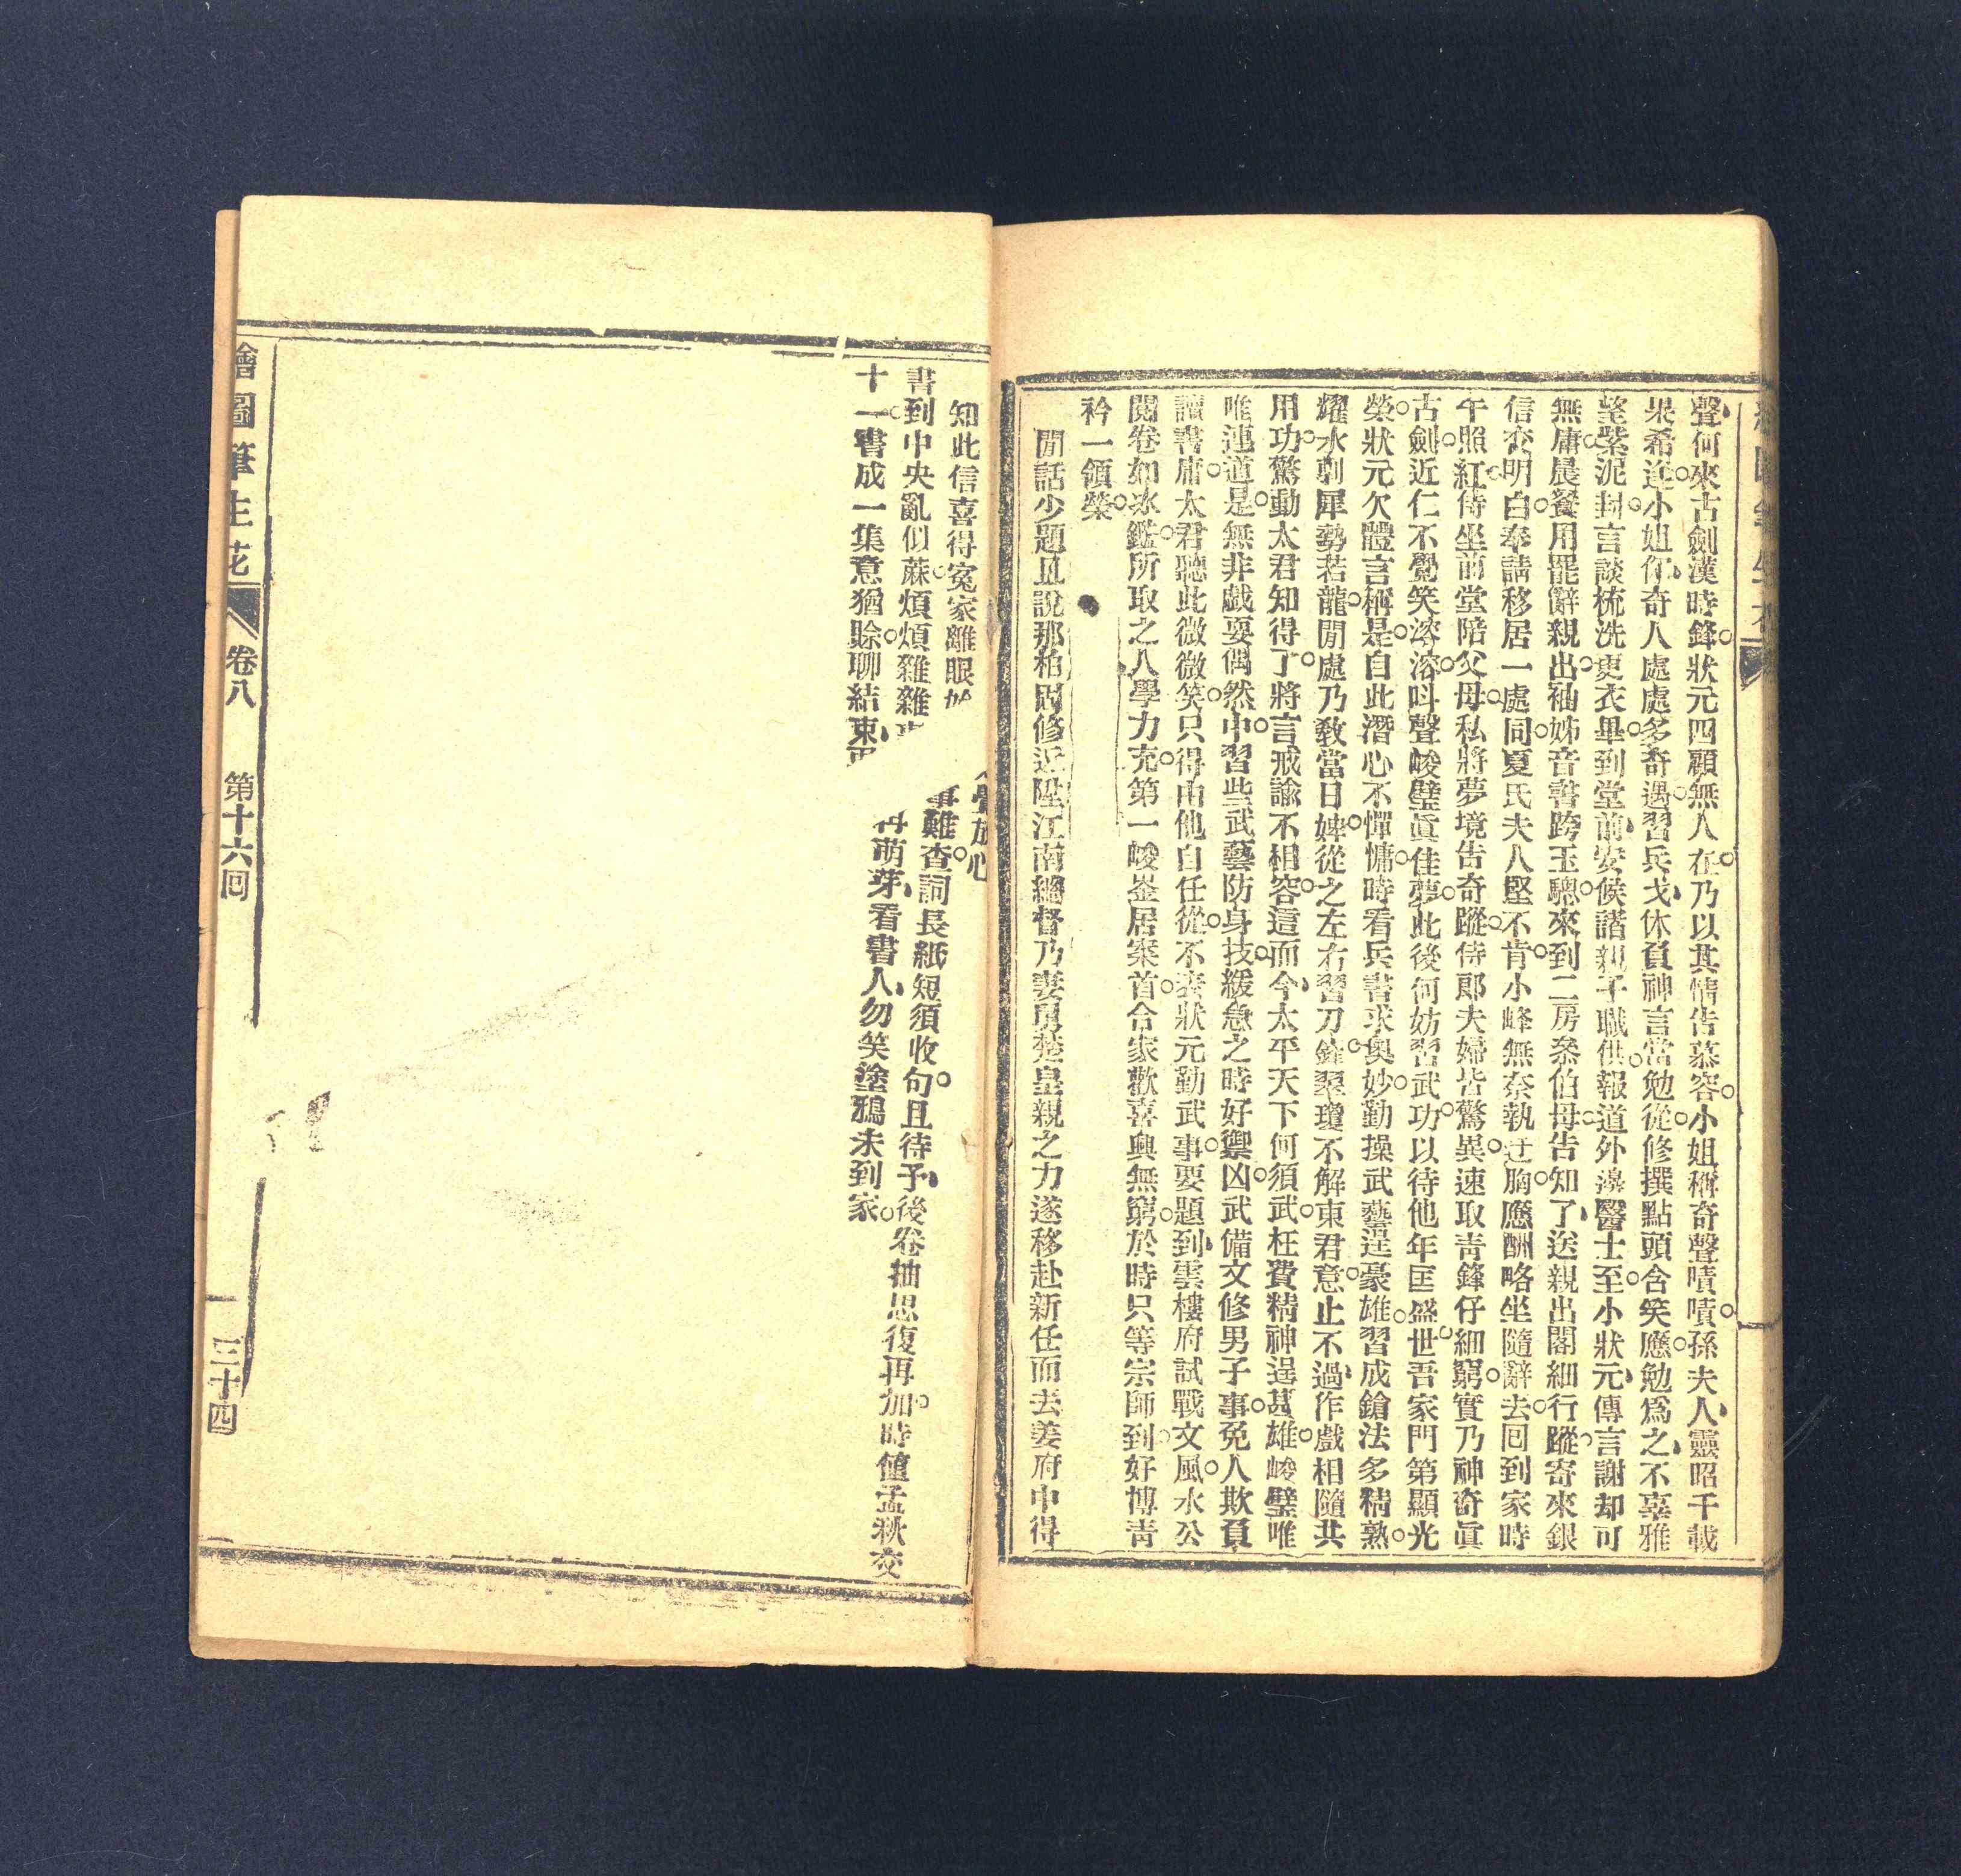 聲何來古劍漢時鋒狀元四顧無人在乃以其情告慕容小姐稱奇聲嘖嘖孫夫人靈昭千載
果希逢小姐你奇人處處多奇遇習兵戈休負神言當勉從修撰點頭含笑應勉爲之不辜雅
望紫泥封言談梳洗更衣畢到堂前安候諧親子職供報道外邊醫士至小狀元傳言謝却可
無庸晨餐用罷辭親出袖姊音書跨玉驄來到二房叅伯母告知了送親出閣細行蹤寄來銀
信交明白奉請移居一處同夏氏夫人堅不肯小峰無奈執迂胸應酬略坐隨辭去囘到家時
午照紅侍坐前堂陪父母私將夢境告奇蹤侍郞夫婦皆驚異速取靑鋒仔細窮實乃神奇眞
古劍近仁不覺笑溶溶呌聲峻璧眞佳夢此後何妨習武功以待他年匡盛世吾家門第顯光
榮狀元欠體言稱是自此潛心不憚慵時看兵書求奧妙勤操武藝逞豪雄習成鎗法多精熟
耀水剸犀勢若龍閒處乃敎當日婢從之左右習刀鋒翠瓊不解東君意止不過作戲相隨共
用功驚動太君知得了將言戒諭不相容這而今太平天下何須武枉費精神逞甚雄峻璧唯
唯連道是無非戲耍偶然中習些武藝防身技緩急之時好禦凶武備文修男子事免人欺負
讀書庸太君聽此微微笑只得由他自任從不表狀元勤武事要題到雲樓府試戰文風水公
閱卷如冰鑑所取之人學力充第一峻崟居案首合家歡喜興無窮於時只等宗師到好博靑
衿一領榮
閒話少題且說那柏固修近陞江南總督乃妻舅楚皇親之力遂移赴新任而去姜府中得
知此信喜得寃家離眼 覺放心
書到中央亂似蔴煩煩雜雜 事難查詞長紙短須收句且待予後卷抽思復再加時値孟秋交
十一書成一集意猶賒聊結束 再萌芽看書人勿笑塗鴉未到家
繪圖筆生花 卷八 第十六囘 三十四